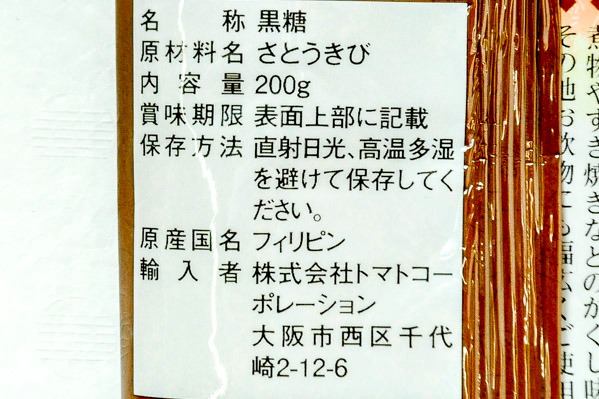 名称 黒糖
原材料名 さとうきび
内容量 200g
賞味期限 表面上部に記載
保存方法 直射日光、高温多湿
を避けて保存してく
ださい。
原産国名 フィリピン
輸入者 株式会社トマトコー
ポレーション
大阪市西区千代
崎2-12-6
煮物やすき焼きなどのかくし味
その他お飲物にも幅広くご使用